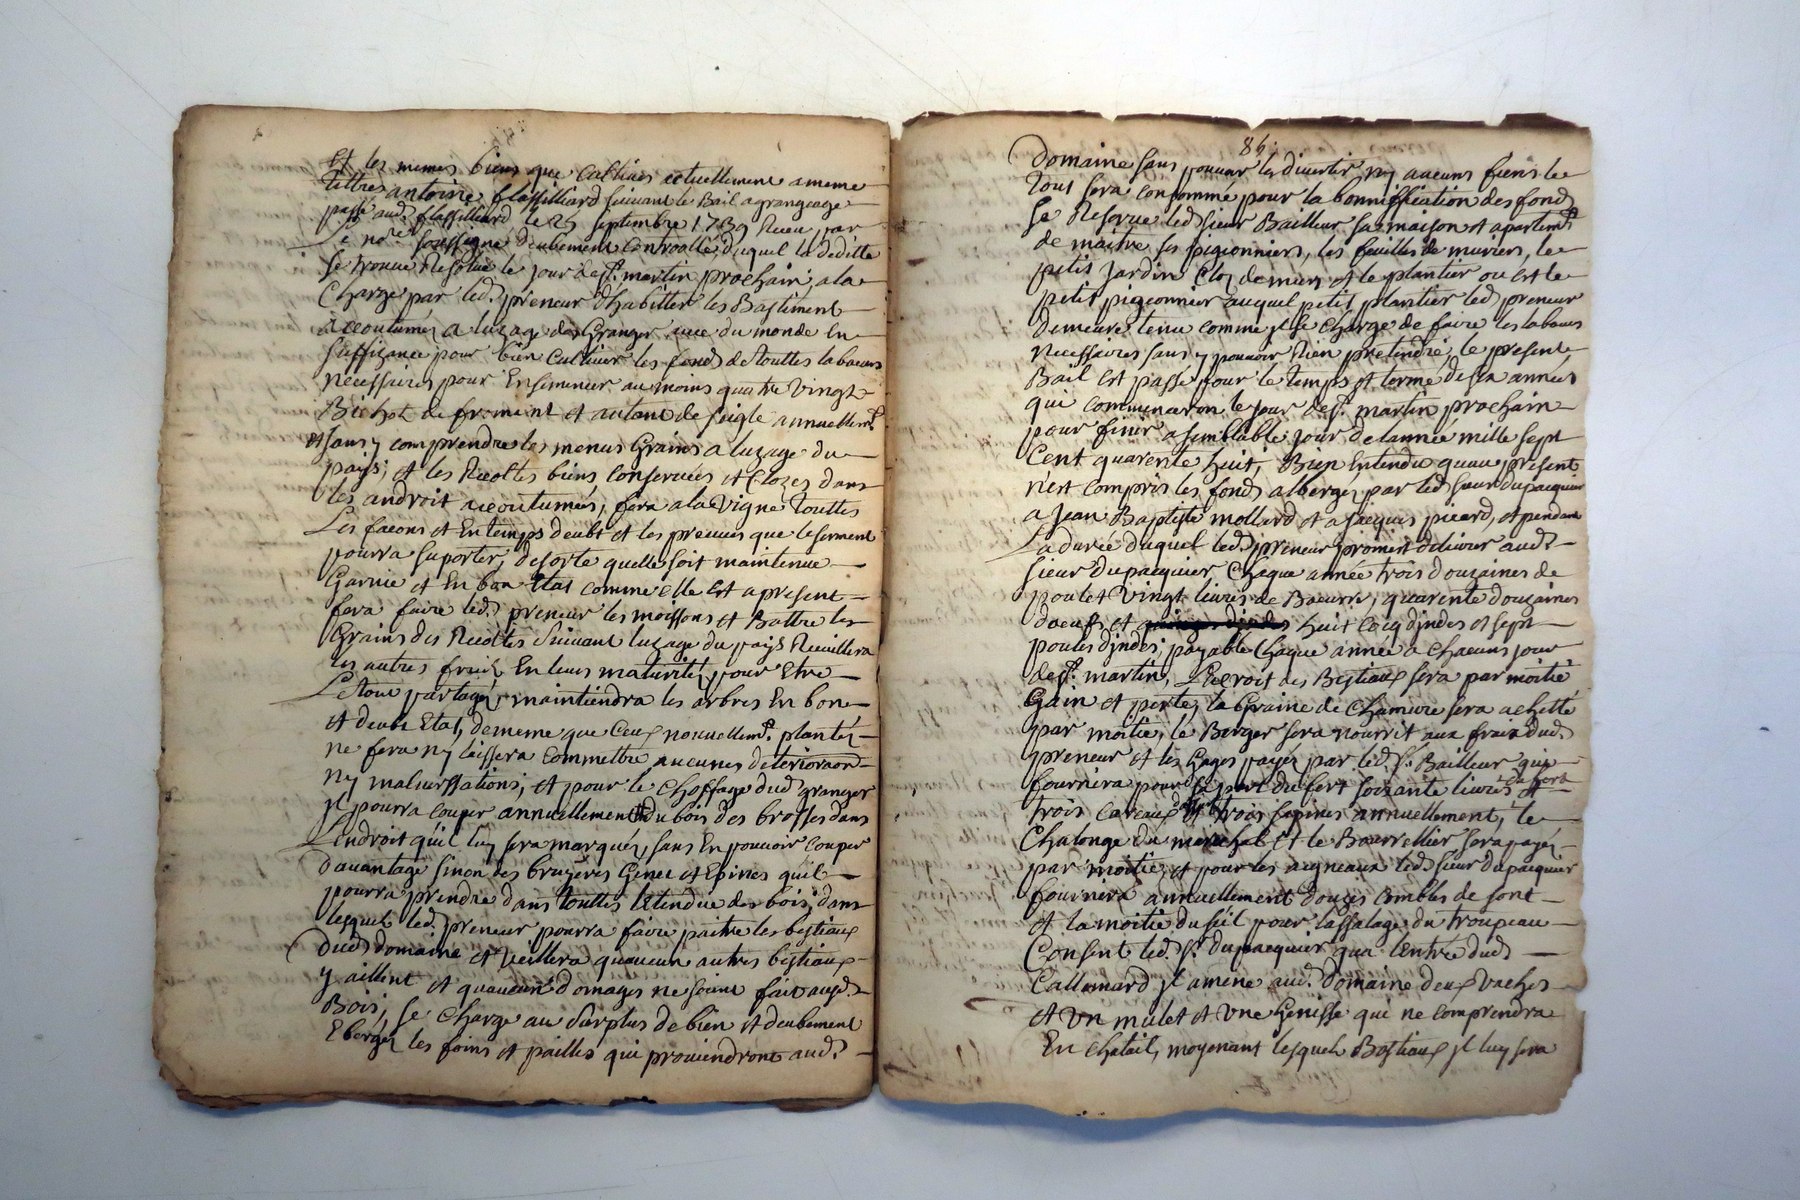 Et les memes biens que Cultives actuellement a meme
tiltres antoine flassilliard suivant le Bail a grangeage
passé aud. flassilliard le 25 septembre 1739 Receu par
Le nore. soussigné deubement Controollé, duquel la deditte
se trouve Resolue le jour de st. martin prochain; a la
Charge par led. preneur d'habitter les Bastiment
accoutumés a luzage des Granger avec du monde En
suffizance pour bien Cultiver les fonds de touttes labeurs
necessaires pour Ensemencer au moins quatre vingt
Bichet de froment et autant de seigle annuellemt.
et sans y comprendre les menus Grains a luzage du
pays; et les Recoltes biens conservées et Clozes dans
les androit accoutumés, fera a la vigne touttes
Les facons et En temps deubt et les preuues que le serment
pourra suporter, de sorte quelle soit maintenue
Garnie et En bon Etat comme elle Est a present
fera faire led. preneur les moissons et Battre les
Grains des Recoltes suivant luzage du pays Recuillera
les autres fruiz En leurs maturités pour Etre
Le tout partagé, maintiendra les arbres En bon
et deubt Etat, de meme que Ceux nouvellemt. plantez
ne fera ny laissera commettre aucunes deterioraon
ny malversations; et pour le Choffage dud. granger
jl pourra couper annuellement du bois des brosses dans
Lendroit qu'il luy sera marqué, sans En pouvoir couper
d'avantage sinon des bruyeres Genet et Epines quil
pourra prendre dans touttes letendue des bois, dans
lesquel led. preneur pourra faire paitre les bestiaux
dud. domaine et Veillera quaucun autres bestiaux
y aillent et quaucun domages ne soient fait auxd.
Bois, se Charge au surplus de bien et deubement
Eberger les foins et pailles qui proviendront aud.
86.
Domaine sans pouvoir les divertir, ny aucuns fiens le
tout sera consommé pour la bonniffication des fond
se Reserve led. sieur Bailleur sa maison et apartemt.
de maitre, ses pigionniers, les feuilles de muriers, le
petit Jardin Cloz de murs et le plantier ou est le
petit pigeonnier auquel petit plantier led. preneur
demeure tenu comme jl se charge de faire les labeurs
necessaires sans y pouvoir Rien pretendre, le present
Bail Est passé pour le temps et terme de six années
qui commenceron le jour de st. martin prochain
pour finir a semblable jour de lannée mille sept
Cent quarente huit, Bien Entendu quau present
n'est compris les fonds albergés par led. sieur dupacquier
a Jean Baptiste mollard et a Jacques picard, et pendant
La durée duquel led. preneur promet delivrer aud.
sieur Dupacquier Chaque année trois douzaines de
poulet Vingt livres de Baeurre, quarente douzaines
doeufs et huit Cocq djndes et sept
poules djndes, payable Chaque année a Chacuns jour
de st. martin, Le croit des Bestiaux sera par moitié
Gain et perte, la Graine de Chamure sera achetté
par moitié, le Berger sera nourrit aux fraix dud.
preneur et les Gages payés par led. sr. Bailleur qui
fournira pour sa part du fert soixante livres et
trois Careaux et trois sapines annuellement; le
Chalonge du marechal Et le Bourrellier sera payés
par moitié, et pour les aigneaux led. sieur dupacquier
fournira annuellement douzes combles de sont
et la moitié du sel pour lassalage du troupeau
Consent led. sr. dupacquier qua lentrée dud.
Callemard jl amene aud. domaine deux Vaches
et Vn mulet et Vne Genisse qui ne comprendra
En Chetail, moyenant lesquels Bestiaux jl luy sera